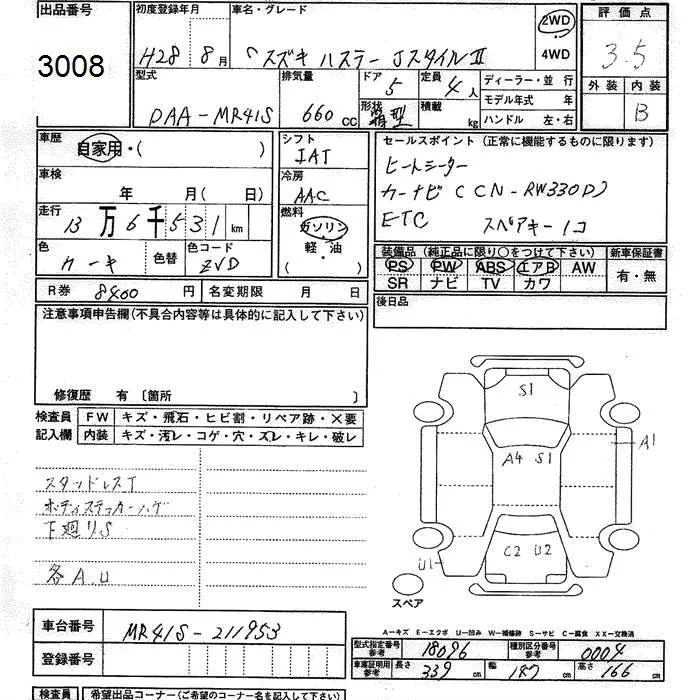 出品番号 初度登録年月 車名・グレード 2WD 評価点
3008 H28 8月 スズキ ハスラー Jスタイル II 4WD 3.5
型式 排気量 ドア 5 定員 4人 ディーラー・並 行 外装 内装
DAA-MR41S 660cc 形状 箱型 積載 kg モデル年式 年 B
ハンドル 左・右
車歴 自家用・( ) シフト IAT セールスポイント (正常に機能するものに限ります)
車検 年 月(日) 冷房 AAC ヒートシーター
走行 13万6千531km 燃料 ガソリン カーナビ (CN-RW330D)
軽・油 ( ) ETC スペアキー1コ
色 カーキ 色替 色コード ZVD 装備品 (純正品に限り○をつけて下さい) 新車保証書
PS PW ABS エアB AW 有・無
R券 8400円 名変期限 月 日 SR ナビ TV カワ
注意事項申告欄(不具合内容等は具体的に記入して下さい) 後日品
修復歴 有 〔箇所 〕
検査員 FW キズ・飛石・ヒビ割・リペア跡・×要
記入欄 内装 キズ・汚レ・コゲ・穴・ズレ・キレ・破レ
スタッドレスT
ボディステッカーハゲ
下廻りS
各A.U
S1
A1
A4 S1
C2 U2
U1
スペア
車台番号 MR41S-211953
登録番号
A-キズ E-エクボ U-凹み W-補修跡 S-サビ C-腐食 XX-交換済
型式指定番号 参考 18096 種類区分番号 参考 0004
車庫証明用 参考 長さ 339cm 幅 147cm 高さ 166cm
検査員 希望出品コーナー(ご希望のコーナー名を記入して下さい)